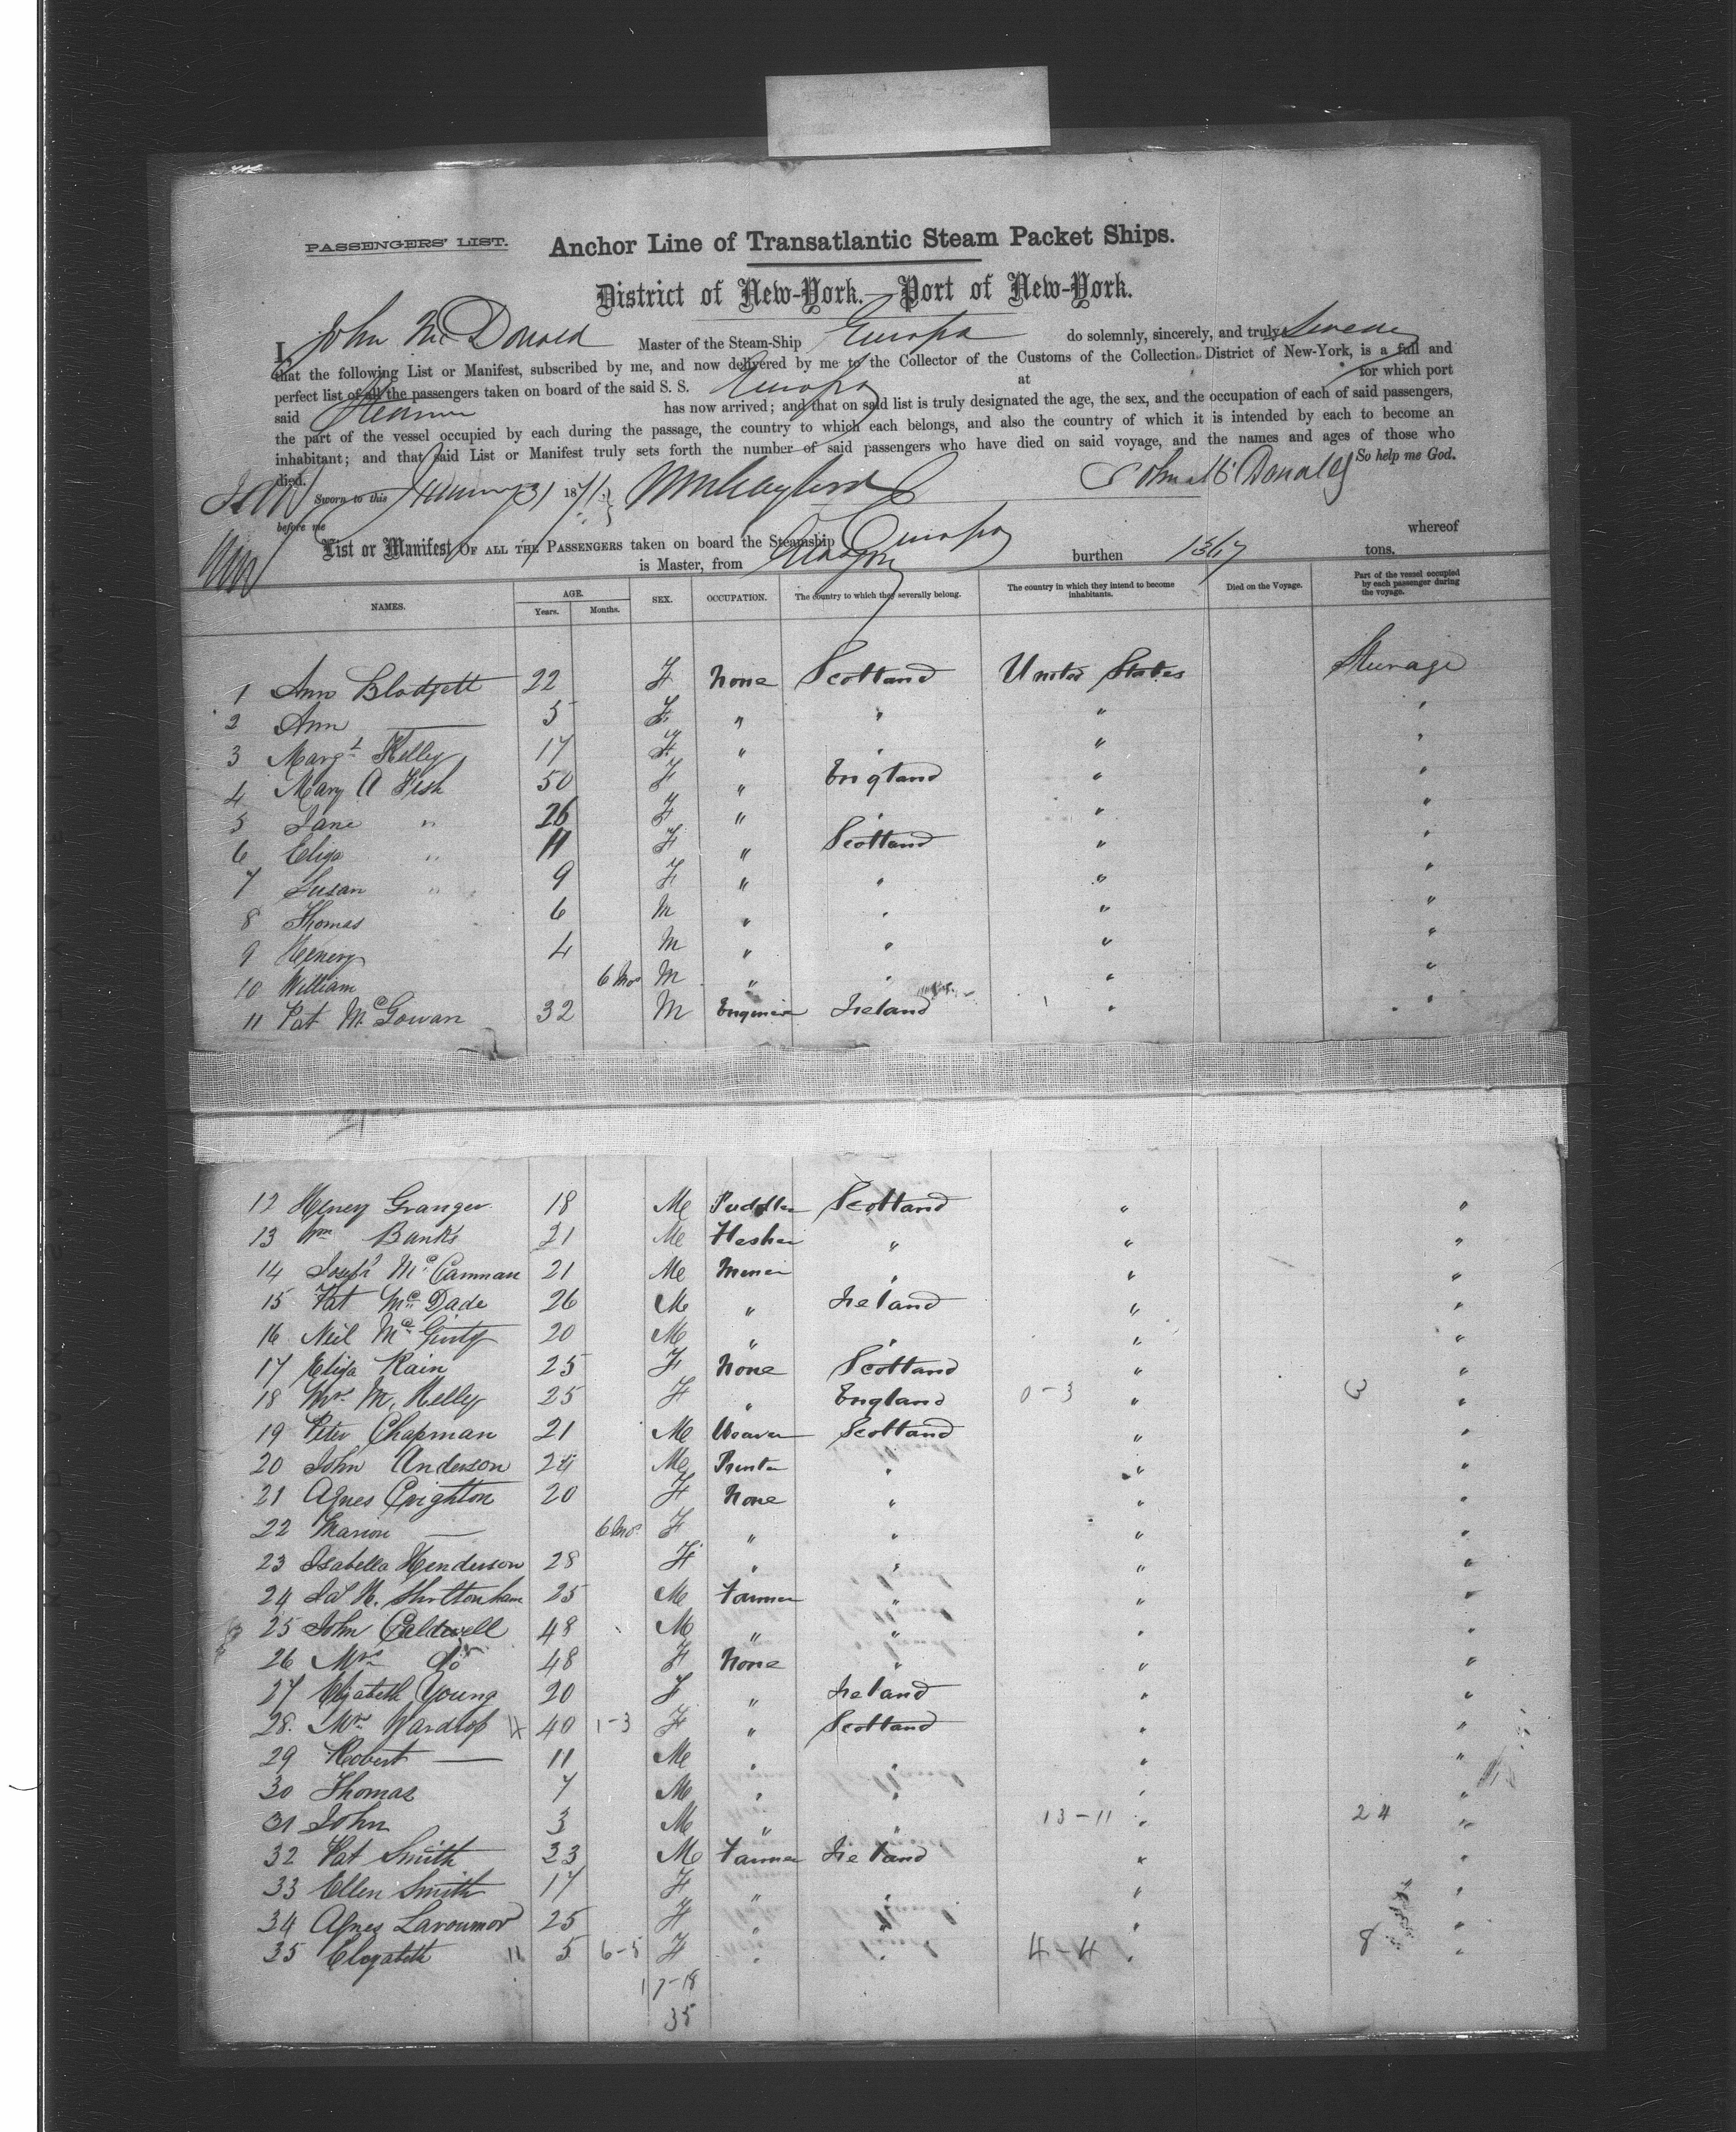 PASSENGERS' LIST. Anchor Line of Transatlantic Steam Packet Ships.
District of New-York.—Port of New-York.
I, John McDonald Master of the Steam-Ship Europa do solemnly, sincerely, and truly Swear
that the following List or Manifest, subscribed by me, and now delivered by me to the Collector of the Customs of the Collection District of New-York, is a full and
perfect list of all the passengers taken on board of the said S. S. Europa at for which port
said Steamer has now arrived; and that on said list is truly designated the age, the sex, and the occupation of each of said passengers,
the part of the vessel occupied by each during the passage, the country to which each belongs, and also the country of which it is intended by each to become an
inhabitant; and that said List or Manifest truly sets forth the number of said passengers who have died on said voyage, and the names and ages of those who
died. So help me God.
Sworn to this January 31 1871 John McDonald
before me
List or Manifest OF ALL THE PASSENGERS taken on board the Steamship Europa whereof
is Master, from Glasgow burthen 1367 tons.
NAMES. AGE. Years. Months. SEX. OCCUPATION. The country to which they severally belong. The country in which they intend to become inhabitants. Died on the Voyage. Part of the vessel occupied by each passenger during the voyage.
1 Ann Blodgett 22 F None Scotland United States Steerage
2 Ann — 5 F " " " "
3 Margt Kelley 17 F " " " "
4 Mary A Fish 50 F " England " "
5 Jane " 26 F " " " "
6 Eliza " 11 F " Scotland " "
7 Susan " 9 F " " " "
8 Thomas 6 M " " " "
9 Henery 4 M " " " "
10 William 6 Mos M " " " "
11 Pat McGowan 32 M Engineer Ireland " "
12 Henery Granger 18 M Puddler Scotland " "
13 Wm Banks 21 M Flesher " " "
14 Joseph McCamman 21 M Miner " " "
15 Pat McDade 26 M " Ireland " "
16 Neil McGinty 20 M " " " "
17 Eliza Kain 25 F None Scotland " "
18 Mrs M. Kelly 25 F " England 0-3 " 3 "
19 Peter Chapman 21 M Weaver Scotland " "
20 John Anderson 24 M Printer " " "
21 Agnes Crighton 20 F None " " "
22 Marion — 6 Mos F " " " "
23 Isabella Henderson 28 F " " " "
24 25 M Farmer " " "
25 John Caldwell 48 M " " " "
26 Mrs do 48 F None " " "
27 Elizabeth Young 20 F " Ireland " "
28. Mrs Wardrop X 40 1-3 F " Scotland " "
29 Robert — 11 M " " " "
30 Thomas 7 M " " " "
31 John 3 M " " 13-11 " 24 "
32 Pat Smith 23 M Farmer Ireland " "
33 Ellen Smith 17 F " " " "
34 Agnes 25 F " " " "
35 Elizabeth " 5 6-5 F " " 4-4 " 8 "
17-18
35